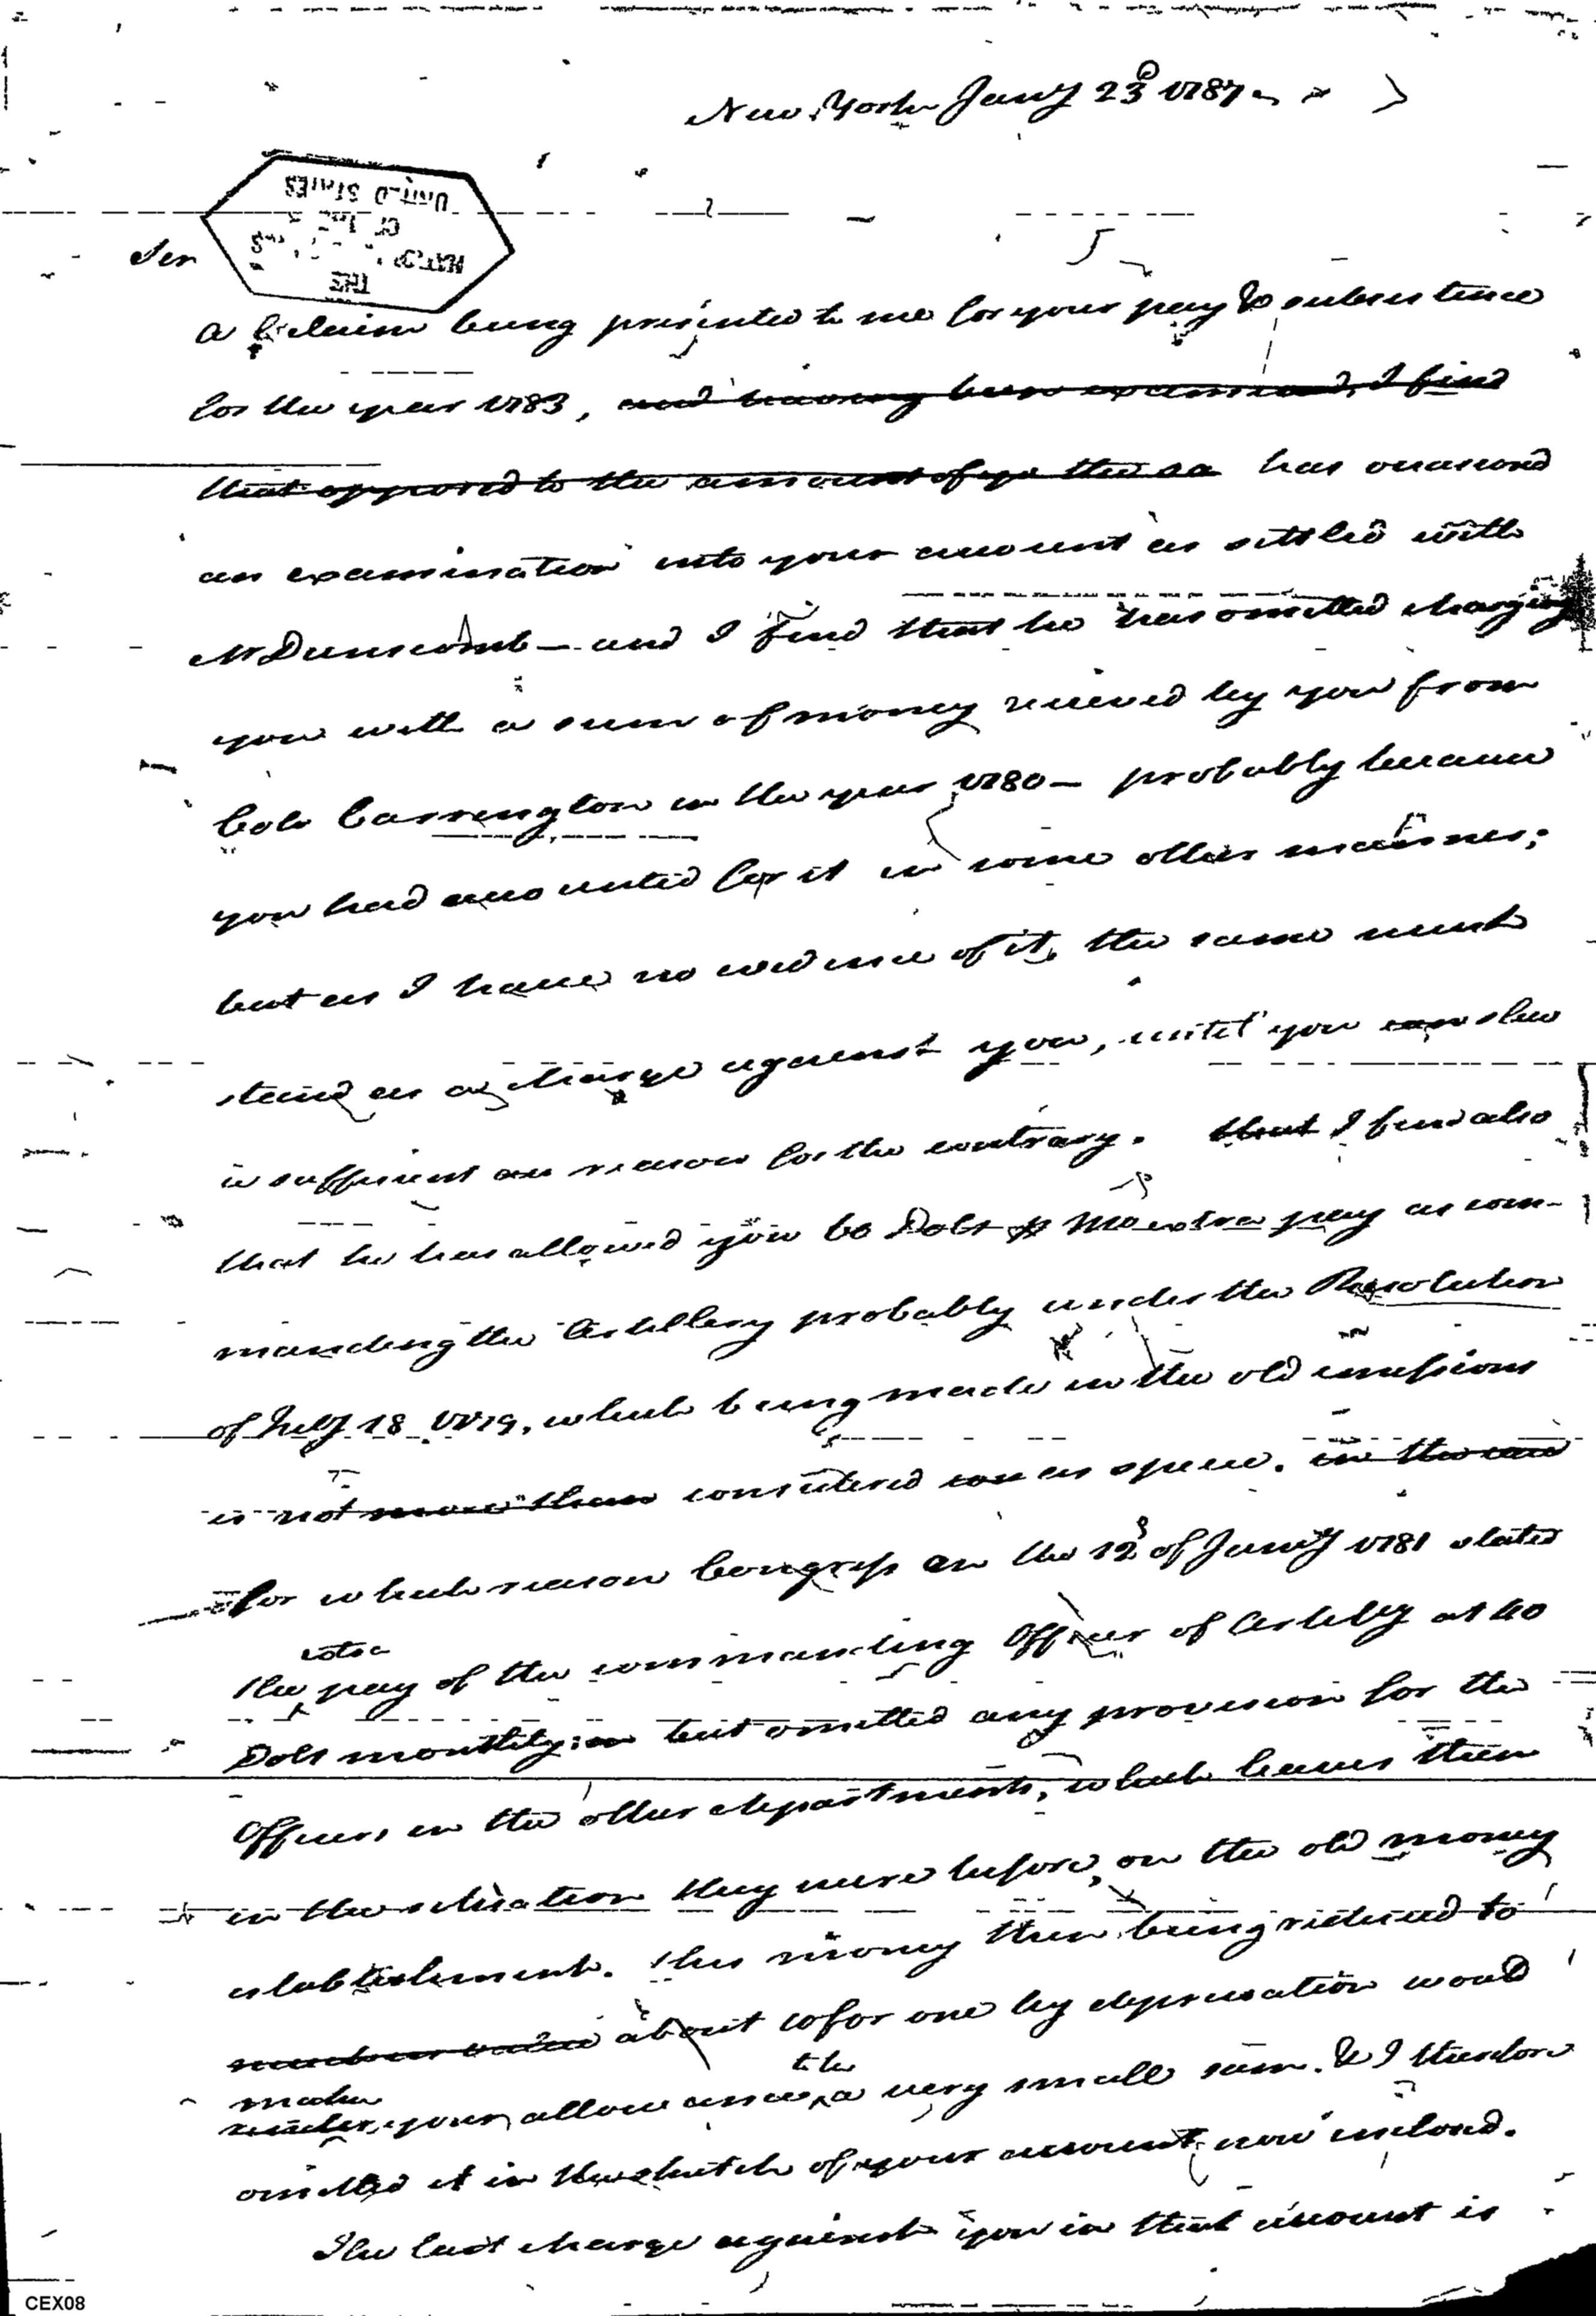 New York Jany 23d 1787
THE NATIONAL ARCHIVES OF THE UNITED STATES
Sir
A Claim being presented to me for your pay & subsistence
for the year 1783, and having been examined, I find
that opposed to the amount of the sa has occasiond
an examination into your account as settled with
Mr Dunscomb - and I find that he has omitted charging
you with a sum of money recieved by you from
Colo Carrington in the year 1780 - probably because
you had accounted for it in some other manner;
but as I have no evidence of it, the same must
stand as a charge against you, until you can shew
a sufficient reason for the contrary. that I find also
that he has allowed you 60 Dols p Mo extra pay as com-
manding the Artillery probably under the Resolution
of July 18 1779, which being made in the old emissions
is not more than considered as specie. in the
for which reason Congress on the 12th of Jany 1781 stated
the extra pay of the commanding Officer of Artilly at 40
Dols monthly: but omitted any provision for the
Officers in the other departments, which leaves them
in the situation they were before, on the old money
establishment. This money then being reduced to
about 60 for one by depreciation would
make render your allowance, a very small sum. & I therefore
omitted it in the sketch of your account now inclosd.
The last charge against you in that account is
CEX08